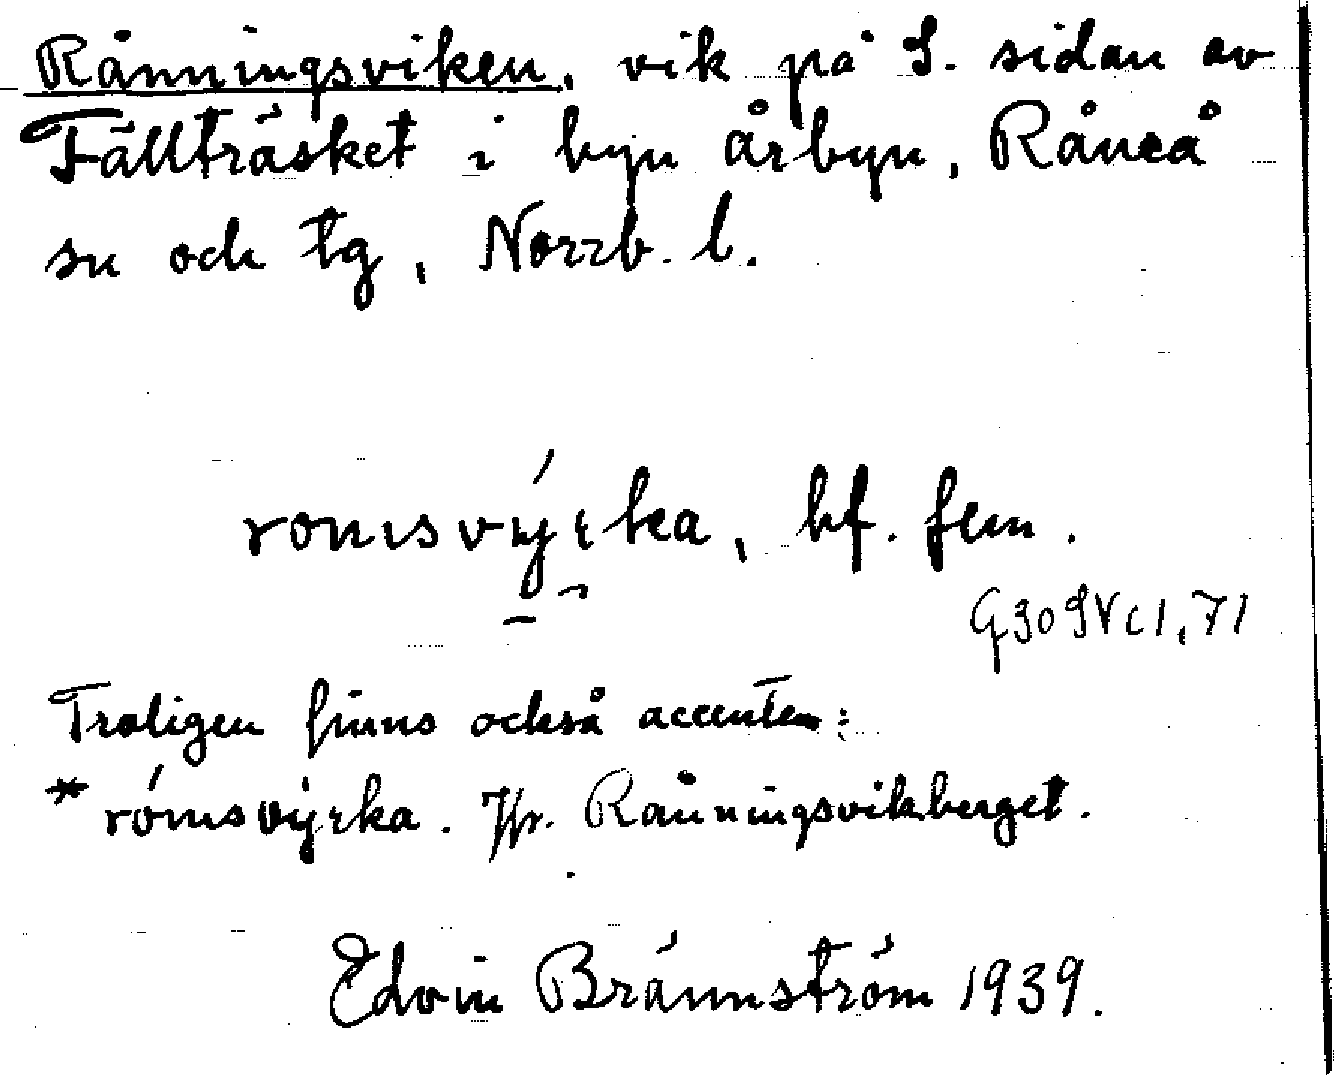 Rånningsviken, vik på S. sidan av
Fällträsket i byn Årbyn, Råneå
sn och tg, Norrb. l.
romsvýrka, bf. fem.
Troligen finns också accenten:
* rómsvýrka. Jfr. Rånningsvikberget.
Edvin Brännström 1939.